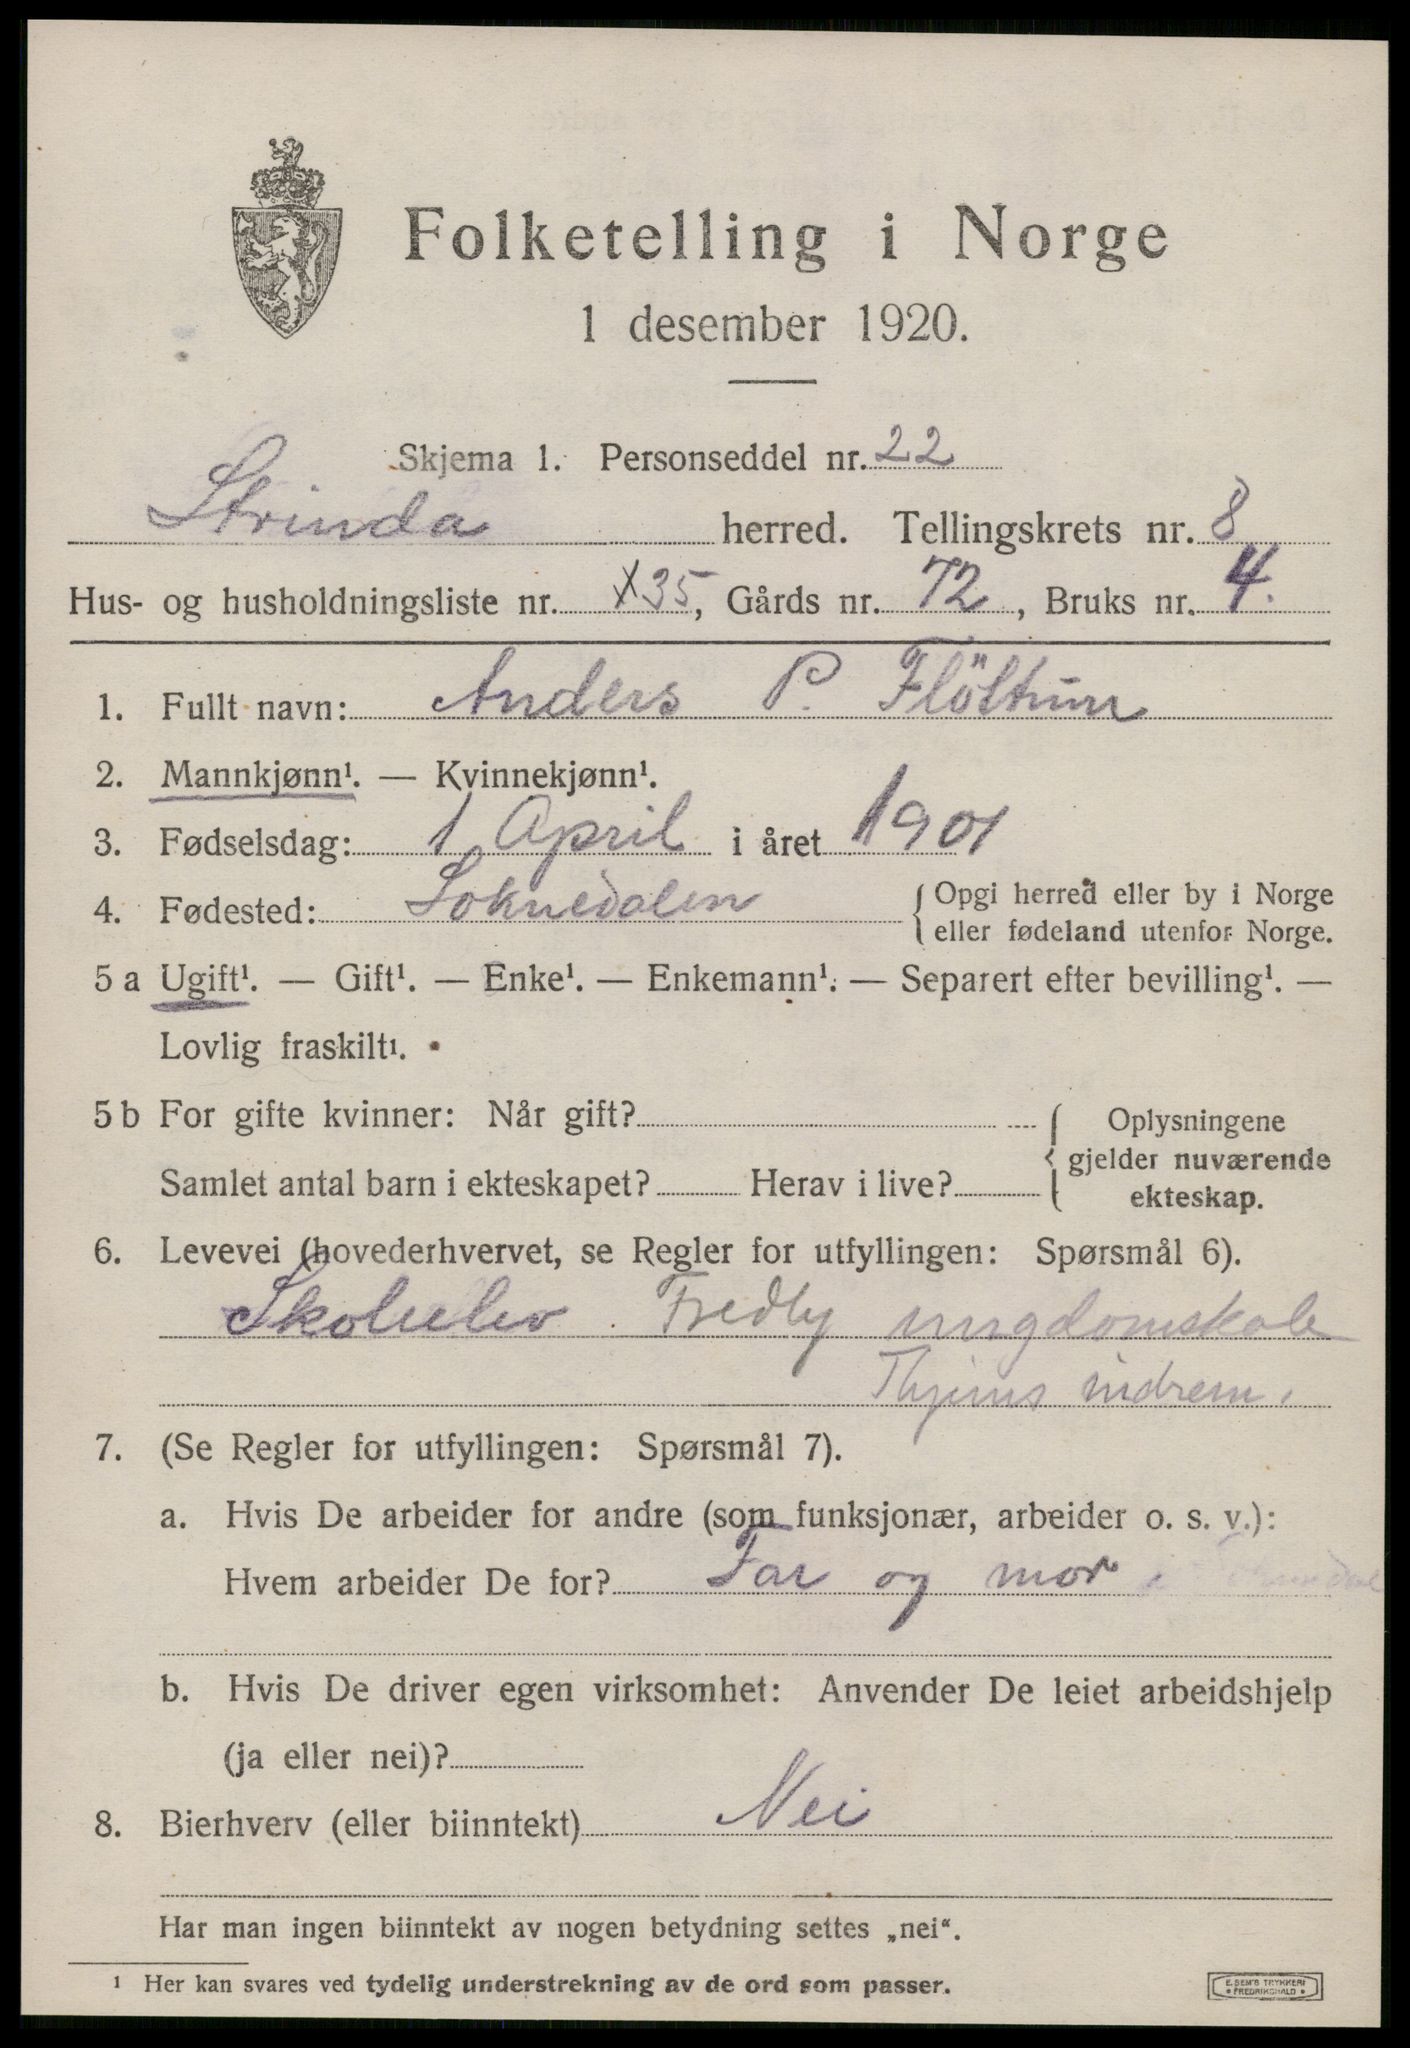 Folketelling i Norge
1 desember 1920.
Skjema 1. Personseddel nr. 22
Strinda herred. Tellingskrets nr. 8
Hus- og husholdningsliste nr. x35, Gårds nr. 72, Bruks nr. 4.
1. Fullt navn: Anders P. Flöttum
2. Mannkjønn¹. — Kvinnekjønn¹.
3. Fødselsdag: 1 April i året 1901
4. Fødested: Soknedalen { Opgi herred eller by i Norge
eller fødeland utenfor Norge.
5 a Ugift¹. — Gift¹. — Enke¹. — Enkemann¹. — Separert efter bevilling¹. —
Lovlig fraskilt¹.
5 b For gifte kvinner: Når gift? { Oplysningene
gjelder nuværende
Samlet antal barn i ekteskapet? Herav i live? ekteskap.
6. Levevei (hovederhvervet, se Regler for utfyllingen: Spørsmål 6).
Skoleelev Fredly ungdomskole
7. (Se Regler for utfyllingen: Spørsmål 7).
a. Hvis De arbeider for andre (som funksjonær, arbeider o. s. v.):
Hvem arbeider De for? Far og mor i
b. Hvis De driver egen virksomhet: Anvender De leiet arbeidshjelp
(ja eller nei)?
8. Bierhverv (eller biinntekt) Nei
Har man ingen biinntekt av nogen betydning settes „nei“.
¹ Her kan svares ved tydelig understrekning av de ord som passer.
E. SEM'S TRYKKERI
• FREDRIKSHALD •